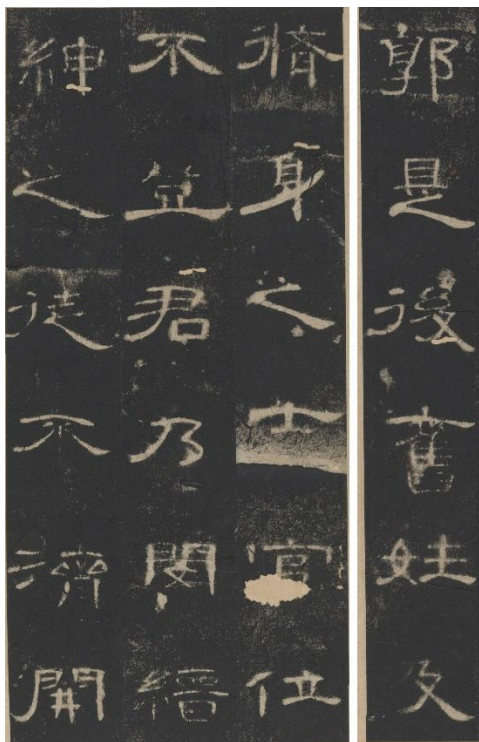 郭是後舊姓及
脩身之士官位
不登君乃閔縉
紳之徒不濟開